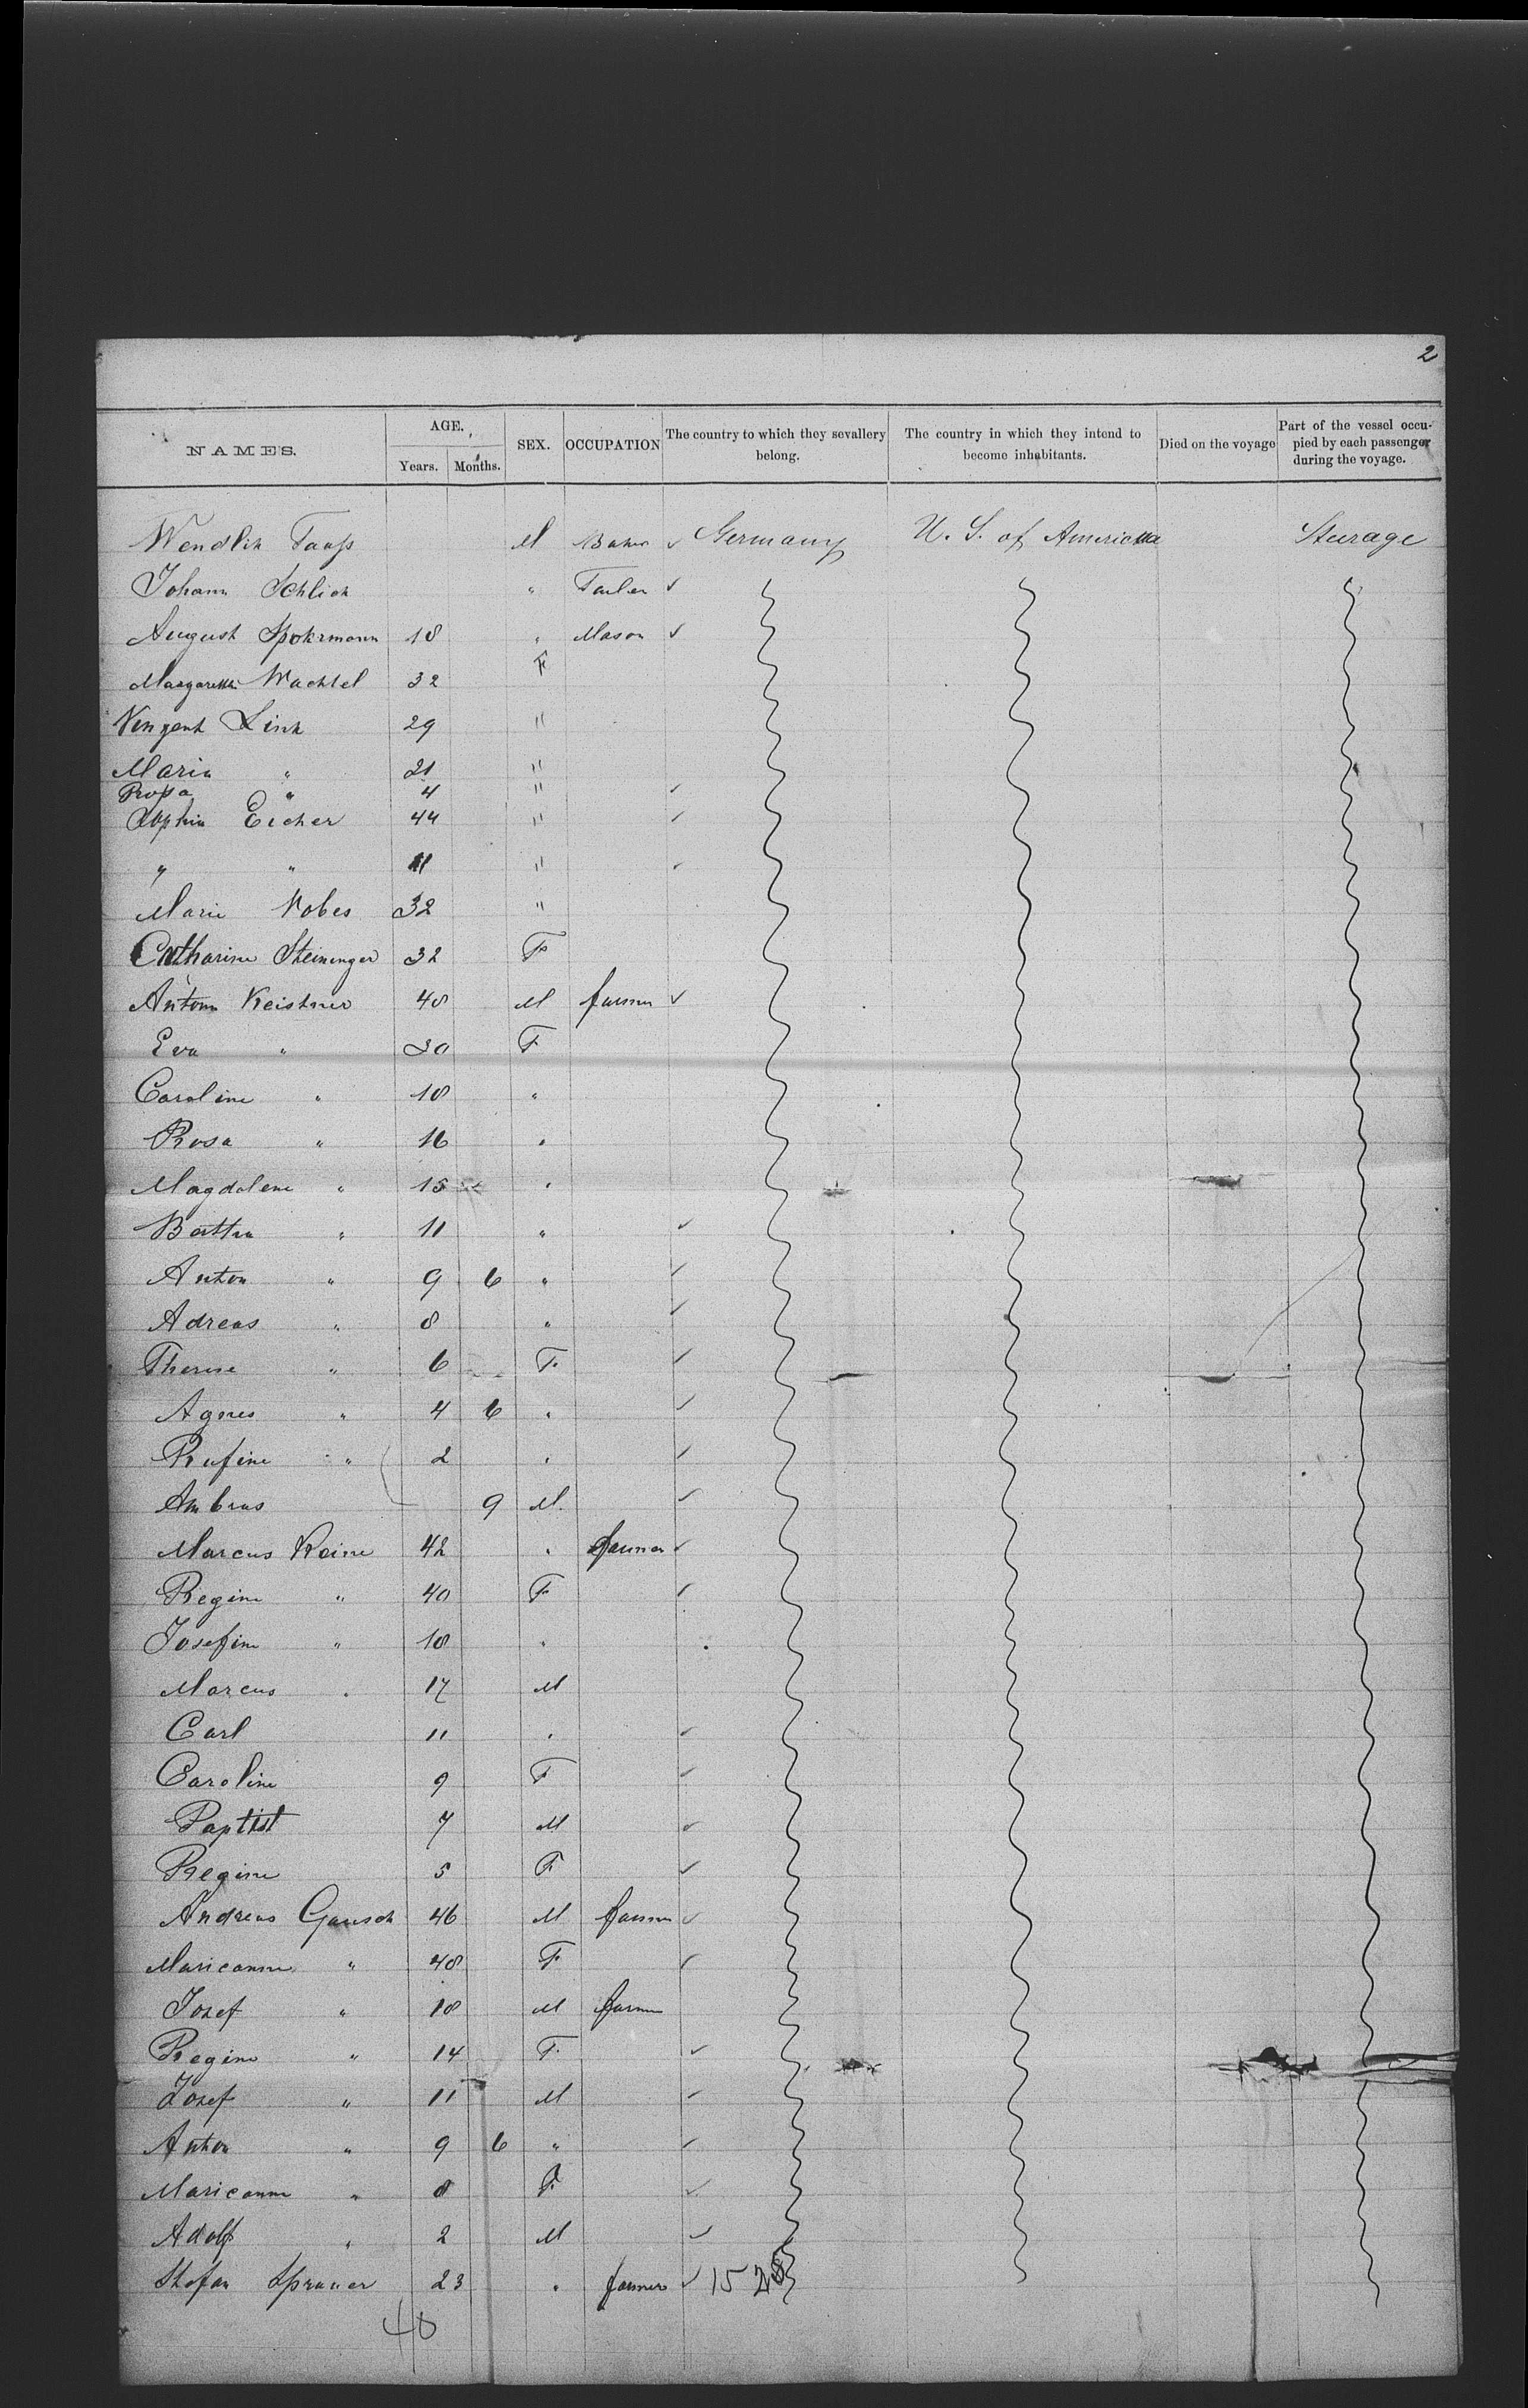 2
NAMES. AGE. Years. Months. SEX. OCCUPATION The country to which they sevallery belong. The country in which they intend to become inhabitants. Died on the voyage Part of the vessel occupied by each passenger during the voyage.
Wendlin M Baker ✓ Germany U. S. of America Steerage
Johann Schlick " ✓
August Spokrmann 18 " Mason ✓
Margaretha Wachtel 32 F
Vinzent Link 29 "
Maria " 21 "
Rosa " 4 " ✓
Sophia Eicher 44 " ✓
" " 11 " ✓
Marie Kobes 32 "
Catharine Steininger 32 F
Anton Keistner 48 M farmer ✓
Eva " 30 F
Caroline " 18 "
Rosa " 16 "
Magdalene " 15 "
Bertha " 11 " ✓
Anton " 9 6 " ✓
Adreas " 8 " ✓
Therese " 6 F. ✓
Agnes " 4 6 " ✓
Rufine " 2 " ✓
Ambras 9 M. ✓
Marcus Keine 42 " farmer ✓
Regine " 40 F ✓
Josefine " 18 "
Marcus " 17 M
Carl 11 " ✓
Caroline 9 F ✓
Paptist 7 M ✓
Regine 5 F ✓
Andreas Gausch 46 M farmer ✓
Marieanne " 48 F ✓
Josef " 18 M farmer
Regine " 14 F. ✓
Josef " 11 M ✓
Anton " 9 6 " ✓
Marieanne " 8 F. ✓
Adolf " 2 M ✓
Stefan Sprauer 23 " farmer ✓ 15 28
40